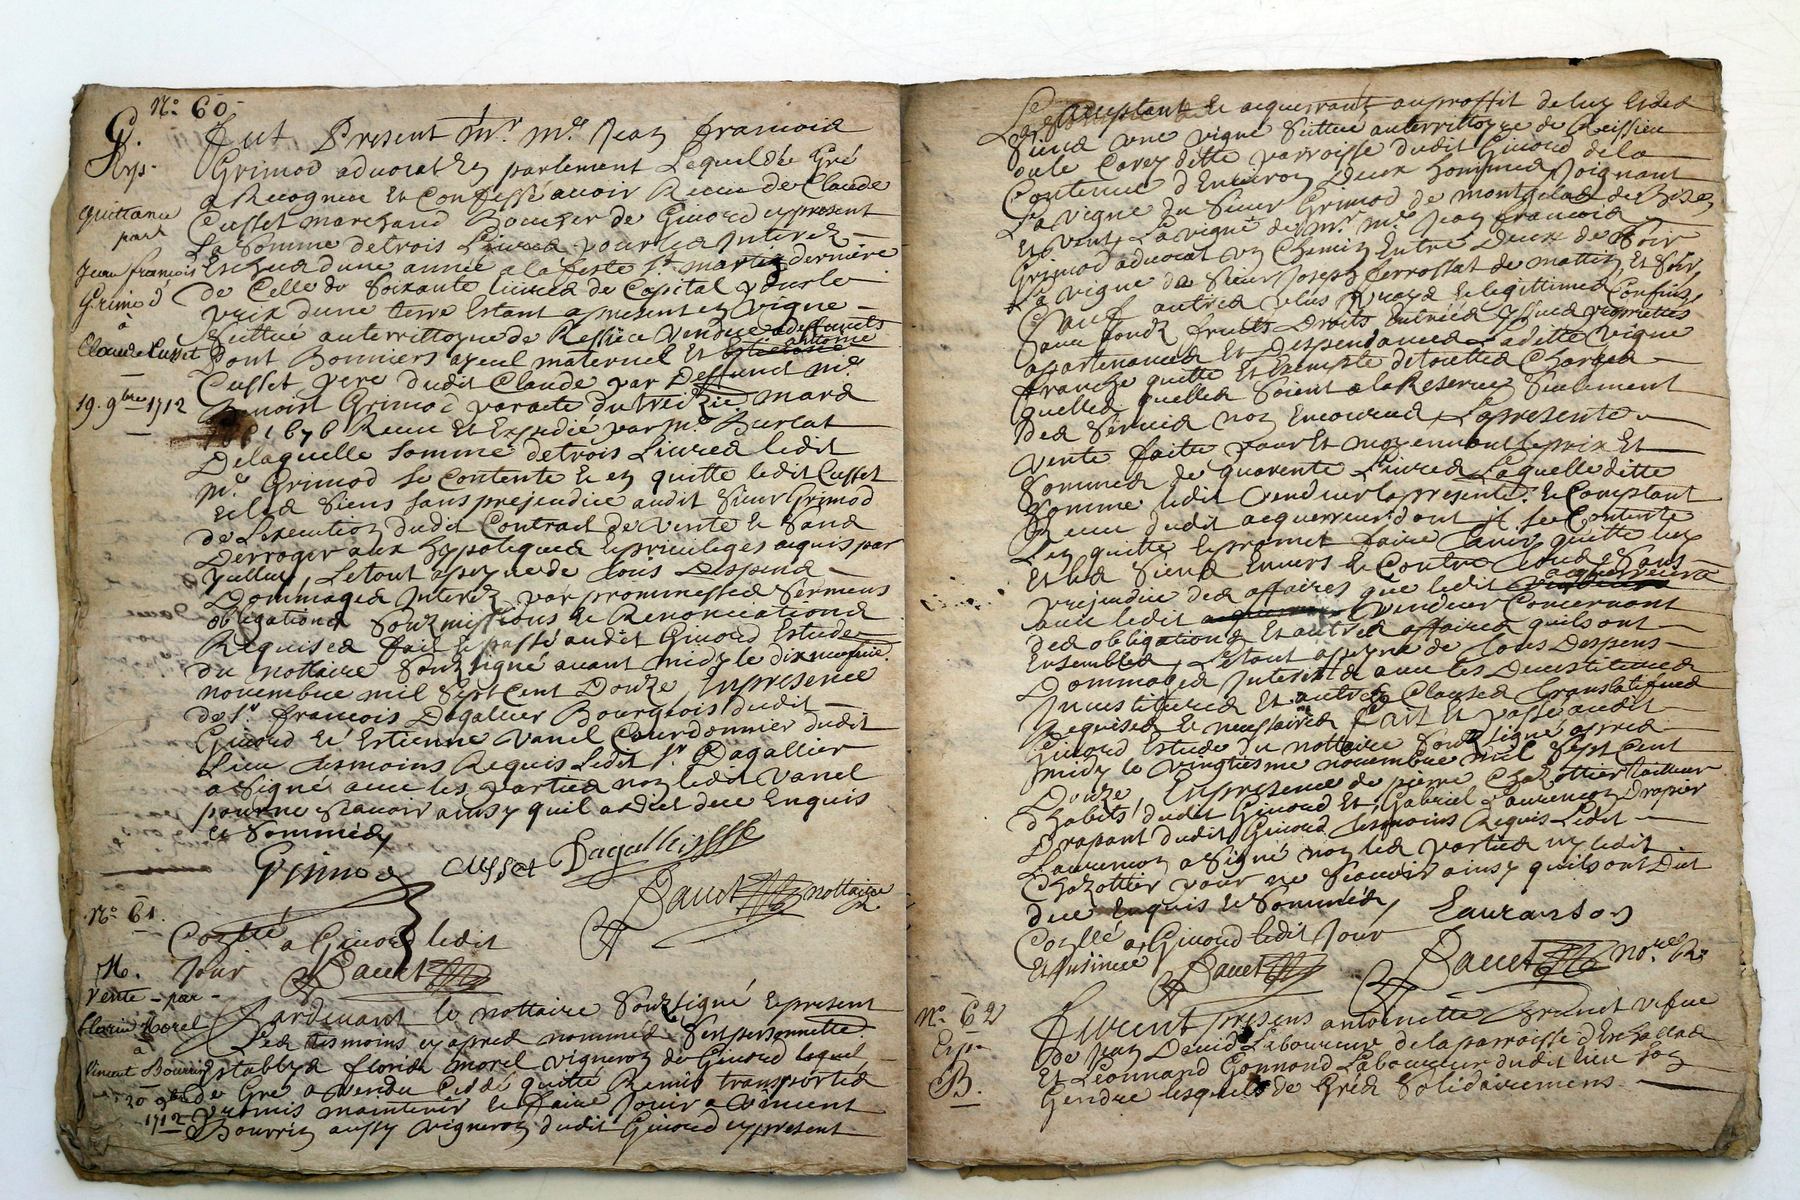 N.° 60
G.
Exp.
Quittance
part
Jean françois
Grimod
à
Claude Cusset
19. 9bre 1712
Fut Present Sr. Mr. Jean francois
Grimod advocat En parlement Lequel de Gré
a Recogneu Et Confessé avoir Receu de Claude
Cusset marchand Boucher de Givord cy present
La Somme de trois Livres pour les Interez
Escheus dune année a la feste St. martin derniere
de Celle de Soixante livres de Capital pour le
prix dune terre Estant a present En Vigne
Scittué au territtoyre de Vendue a deffuncts
pont Bonniers ayeul maternel Et antoine
Cusset pere dudit Claude par Deffunct Mr.
Benoist Grimod par acte du treizie mars
1676 Receu Et Expedié par Mr. Burlat
De laquelle Somme de trois Livres ledit
Mr. Grimod Se Contente Et En quitte ledit Cusset
Et les Siens Sans prejudice audit Sieur Grimod
de Lexecution dudit Contract de Vente Et Sans
Derroger aux hypoteques Et privileges acquis par
Le tout a peyne de tous Despens
Dommages Interez par prommesses Sermens
obligations Soubmissions Et Renonciations
Requises fait Et passé audit Givord Estude
du nottaire Soubsigné avant midy le dix neufvie
novembre mil Sept Cent Douze En presence
de Sr. francois Dagallier Bourgeois dudit
Givord Et Estienne Vanel Courdonnier dudit
Lieu tesmoins Requis Ledit Sr. Dagallier
a Signé avec les parties non ledit Vanel
pour ne Scavoir ainsy quil a dit de ce Enquis
Et Sommés
Grimod Cusset Dagallier
Dauet nottaire
N.° 61.
Con̄llé a Givord ledit
Jour Dauet
M.
Vente - par -
florin Morel
à
Vincent Bourrin
20 9bre
1712
Pardevant le nottaire Soubsigné Et present
Les tesmoins cy apres nommés
Estably florin morel vigneron de Givord lequel
de Gré a Vendu Ceddé quitté Remis transporté
promis maintenir Et faire Jouir a Vincent
Bourrin aussy vigneron dudit Givord cy present
acquerrant au proffit de luy Et des
Siens une vigne Scittué au territtoyre de
parroisse dudit Givord de la
Contenue d'Environ Deux hommées Joignant
La vigne du Sieur Grimod de montgelas de Bize
Et Vent, La vigne de Mr. Mr. Jean francois
Grimod advocat un Chemin Entre Deux de Soir
La vigne du Sieur Joseph ferrossat de mattin Et Soir
Sauf autres plus vrays Et legittimes Confins,
Avec fonds fruits Droits Entrées yssues proprietés
appartenances Et Despendances Ladette Vigne
franche quitte Et Exempte de touttes Charges
quelles quelles Soient a la Reserve Seulement
Des Servis non Encourus La presente
Vente faite pour Et moyennant le prix Et
Somme de quarente Livres Laquelle ditte
Somme ledit Vendeur la presente Et Comptant
Receu dudit acquerreur dont il Se Contente
Len quitte Et promet faire tenir quitte luy
Et les Siens Envers Et Contre tous Sans
prejudice des affaires que ledit acquerreur a
avec ledit Vendeur Concernant
Des obligations Et autres affaires quils ont
Ensembles, Le tout a peyne de tous Despens
Dommages Interez avec les Devestitures
Investitures Et autres Clauses translatifves
Requises Et necessaires fait Et passé audit
Givord Estude du nottaire Soubsigné apres
midy le vingtiesme novembre mil Sept Cent
Douze, En presence de pierre Chazottier tailleur
d'habits dudit Givord Et Gabriel Laurencon Drapier
Drapant dudit Givord tesmoins Requis Ledit
Laurencon a Signé non les parties ny ledit
Chazottier pour ne Scavoir ainsy quils ont Dit
de ce Enquis Et Sommés
Lauranson
Con̄llé a Givord ledit Jour
Et Insinué Dauet Dauet nore.
N.° 62
Exp.
B.
furent presens antoinette Brunet vefue
de Jean Denis Laboureur de la parroisse d'Eschallas
Et Leonnard Gonnond Laboureur dudit lieu Son
Gendre lesquels de Grés Solidairemens